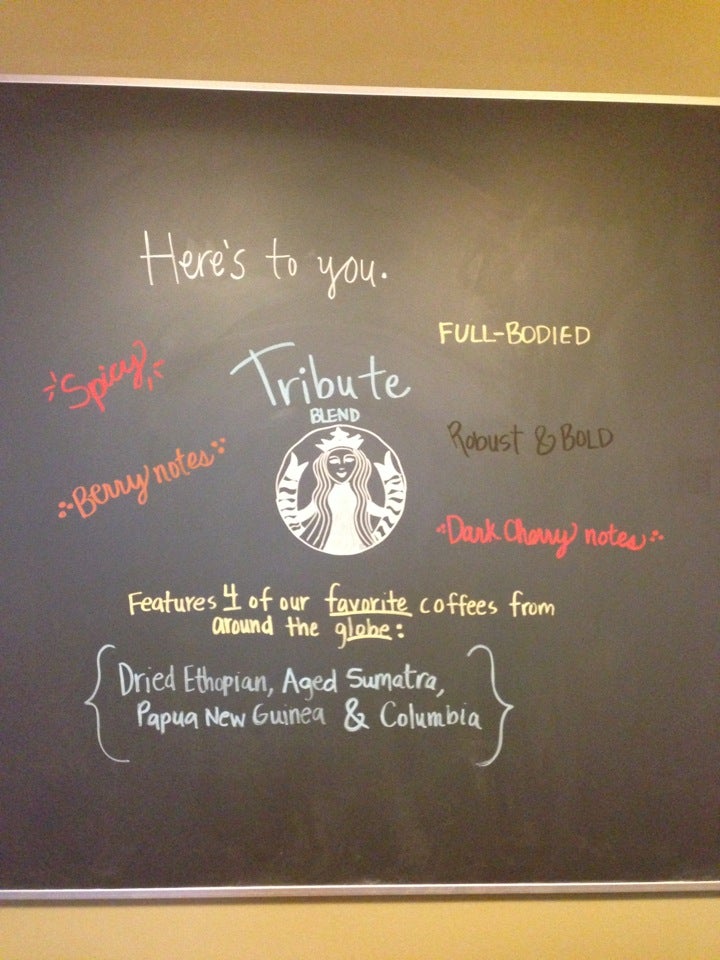 Here's to you.
FULL-BODIED
Spicy
Tribute
BLEND
Robust & BOLD
Berry notes
Dark Cherry notes
Features 4 of our favorite coffees from
around the globe:
Dried Ethopian, Aged Sumatra,
Papua New Guinea & Columbia